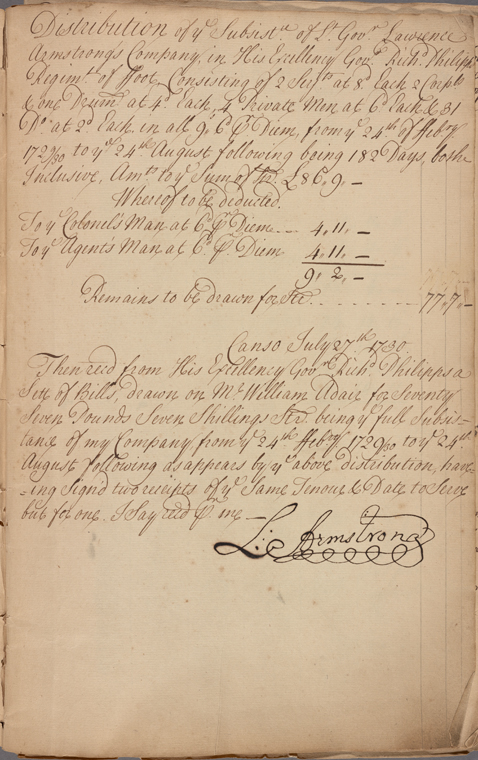 Distribution of yᵉ Subsistᶜᵉ of Lᵗ. Govʳ. Lawrence
Armstrong's Company, in His Excellency Govʳ. Richᵈ. Philipps
Regimᵗ. of Foot, Consisting of 2 Serjᵗˢ at 8ᵈ Each 2 Corpˡˢ
& one Drumʳ at 4ᵈ Each, 4 Private Men at 6ᵈ Each & 31
Dᵒ. at 2ᵈ Each in all 9s, 6 ⅌ Diem, from yᵉ 24ᵗʰ of ffebʳʸ
1729/30 to yᵉ 24ᵗʰ August following being 182 Days, both
Inclusive, Amᵗˢ to yᵉ Sum of £86,, 9,, —
Whereof to be deducted
To yᵉ Colonel's Man at 6ᵈ ⅌ Diem .... 4,, 11,, —
To yᵉ Agent's Man at 6ᵈ ⅌ Diem 4,, 11,, —
9,, 2,, —
Remains to be drawn for Ster. .......... 77,, 7,, —
Canso July 27ᵗʰ 1730.
Then recd from His Excellency Govʳ. Richᵈ. Philipps a
Sett of Bills, drawn on Mʳ William Adair for Seventy
Seven Pounds Seven Shillings Ster. being yᵉ full Subsis=
tance of my Company from yᵉ 24ᵗʰ ffebʳʸ 1729/30 to yᵉ 24ᵗʰ
August following as appears by yᵉ above distribution, hav=
=ing Signd two receipts of yᵉ Same Tenour & Date to Serve
but for one. I Say recd ⅌ me —
L: Armstrong